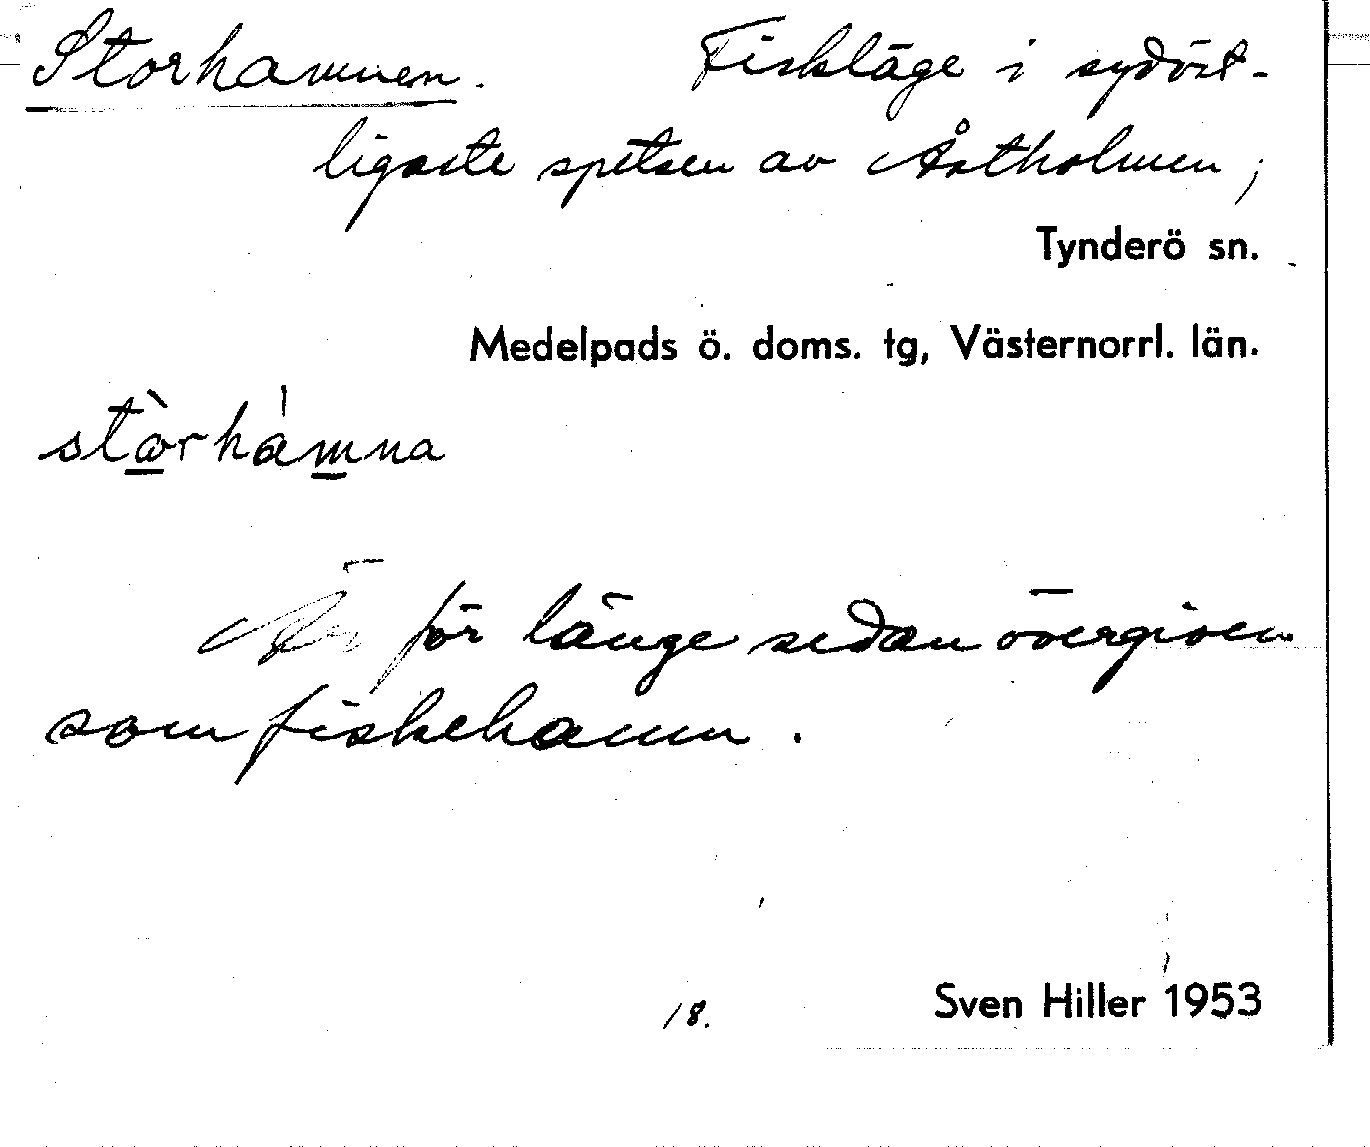 Storhamnen. Fiskläge i sydöst-
ligaste spetsen av Åstholmen,
Tynderö sn.
Medelpads ö. doms. tg, Västernorrl. län.
stòrhámna
Är för länge sedan övergiven
som fiskehamn.
18. Sven Hiller 1953